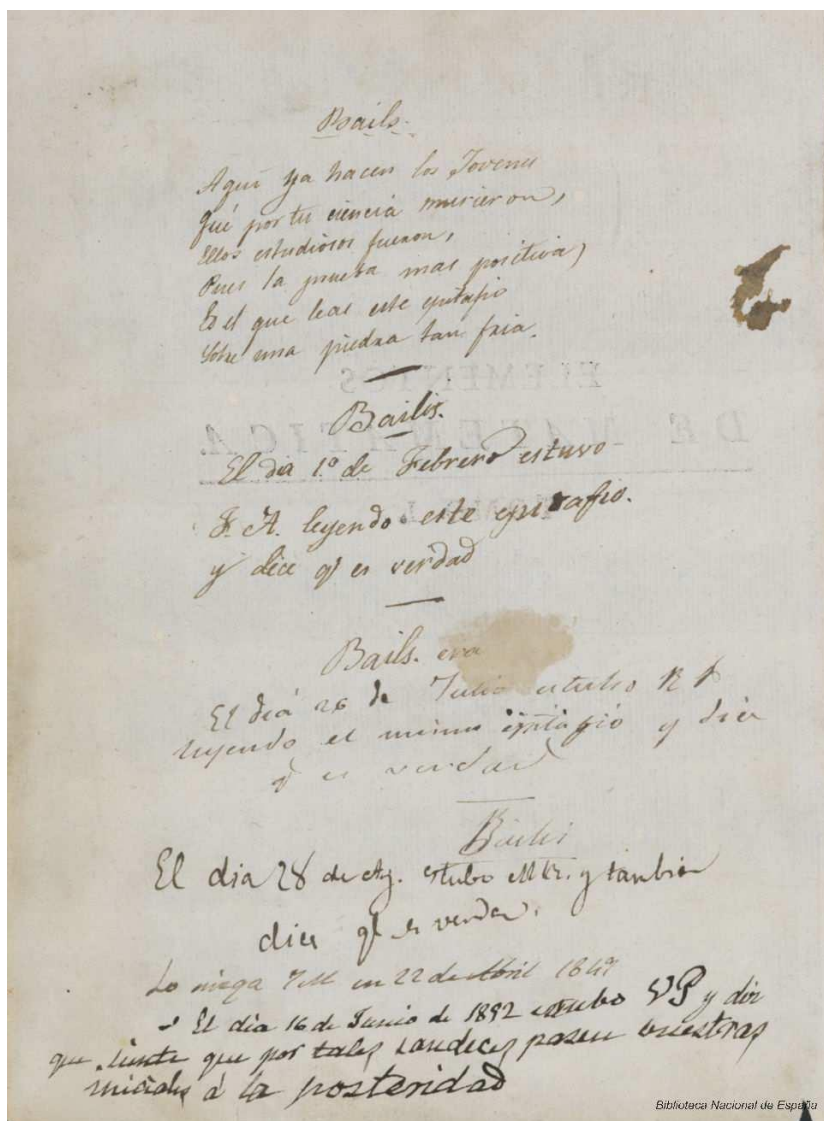 Bails.
Aqui ya hacen los Jovenes
Qué por tu ciencia murieron,
Ellos estudiosos fueron,
Pues la prueba mas positiva,
Es el que leas este epitafio
Sobre una piedra tan fria.
Bailis.
El dia 1º de Febrero estuvo
F. A. leyendo este epitafio.
y dice q es verdad
Bails. era
El diá 26 de Julio estubo R
leyendo el mismo epitafio y dice
q es verdad
Bails
El dia 28 de Ag. estubo y tambien
dice q es verdad.
Lo niega en 22 de Abril 1847
El dia 16 de Junio de 1892 estubo VP y dice
que siente que por tales sandeces pasen vuestras
iniciales á la posteridad
ELEMENTOS
DE MATEMATICA.
TOMO I.
Biblioteca Nacional de España